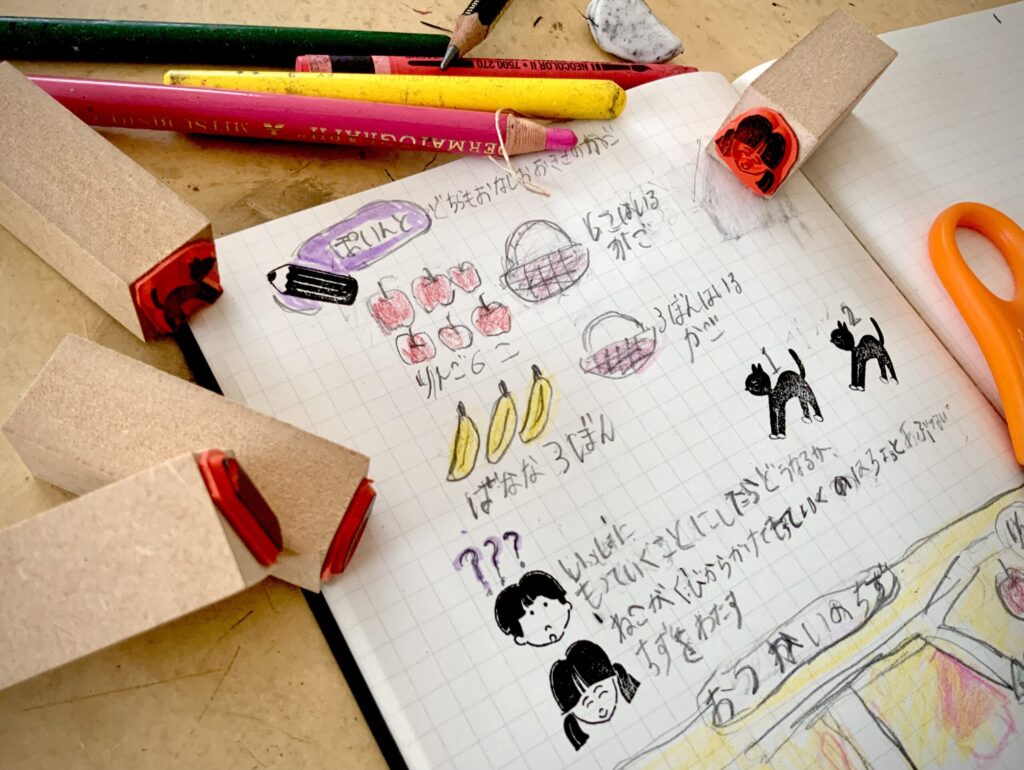 NEOCOLOR II • 7500.270
DERMATOGRAPH
MITSUBISHI
どちらもおなじおおきさのかご
ぽいんと
りんご6こ
かご
3ぼんはいる
かご
1
2
ばなな 3ぼん
???
いっしょに
もっていくことにしたらどうなるか、
ねこがくびからかけてもっていくのはちょっとあぶない
ちずをわたす
おつかいのちず